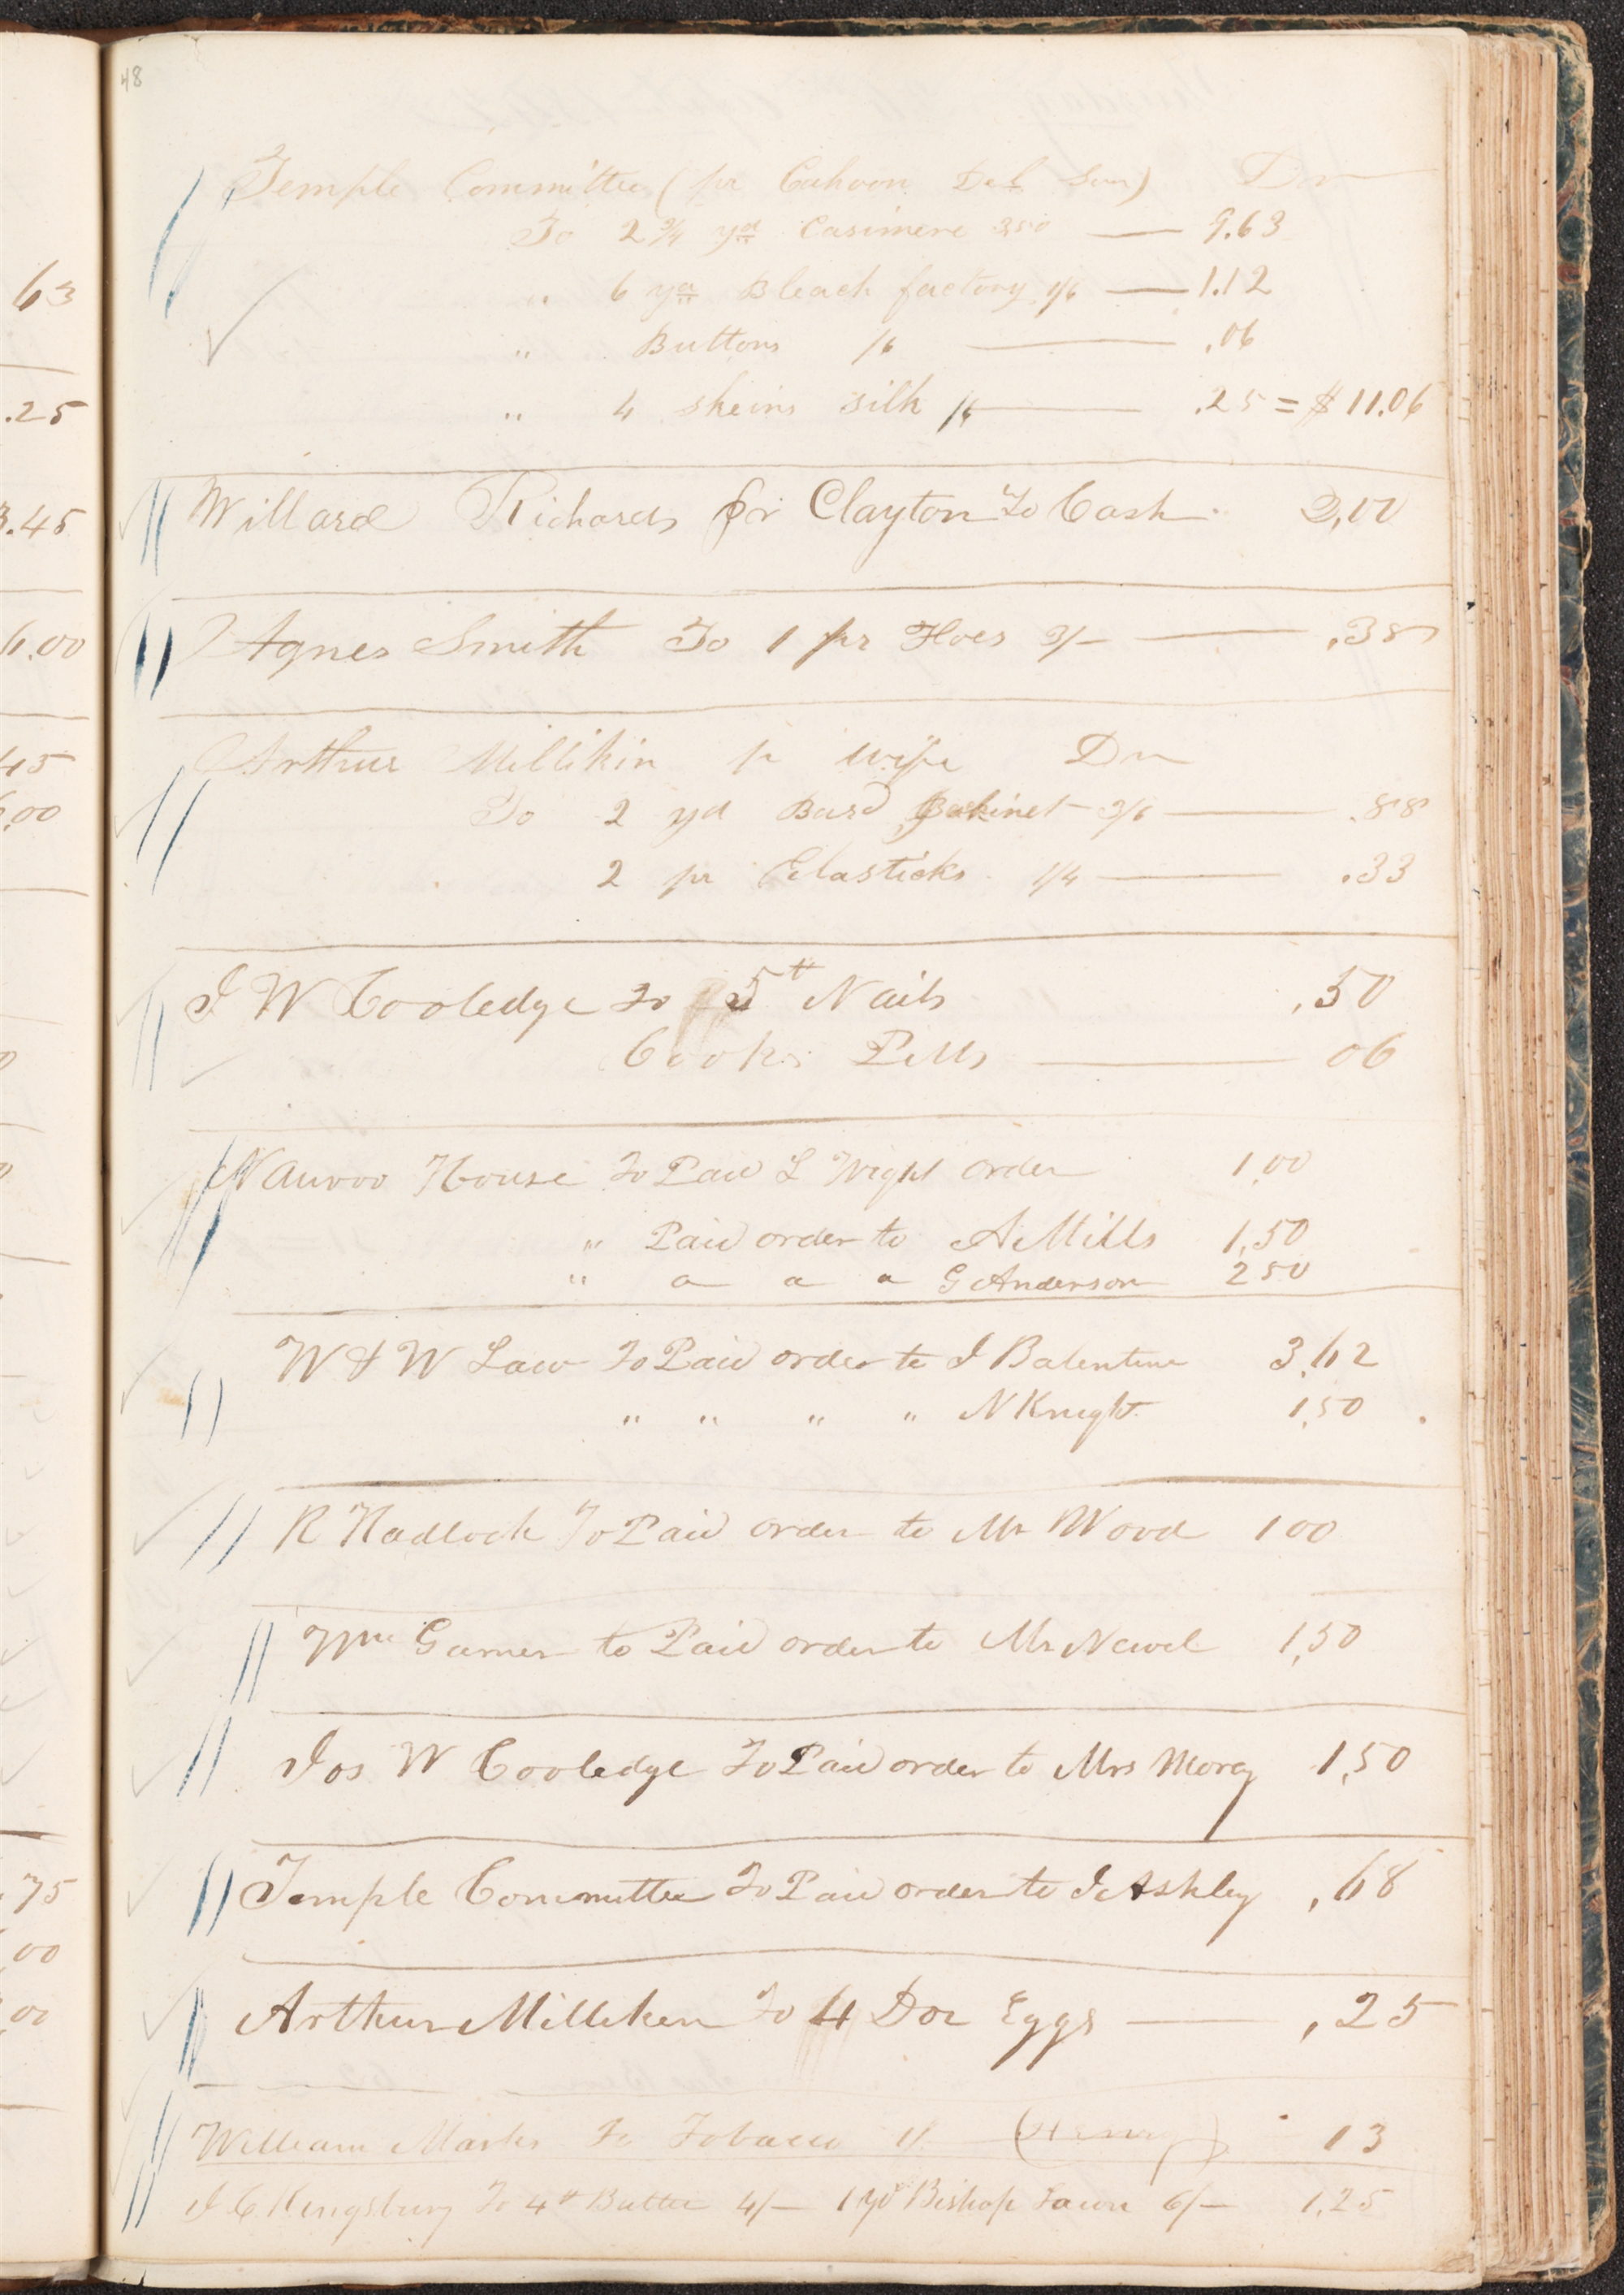 48
Temple Committee (pr Cahoon Del Son) Dr
To 2 3/4 yds Casimere 350 — 9.63
" 6 yds Bleach factory 1/6 — 1.12
" Buttons /6 — .06
" 4 skeins silk /6 — .25 = $11.06
Willard Richards pr Clayton To Cash 2,00
Agnes Smith To 1 pr Hoes 3/– — .38
Arthur Millikin pr wife Dr
To 2 yd Bard 3/6 — .88
2 pr Elasticks 1/4 — .33
J W Cooledge To 5 # Nails ,50
Cooks Pills — 06
Nauvoo House To Paid L Wight order 1,00
" Paid order to A Mills 1,50
" " " " G Anderson 250
W & W Law To Paid order to J Balentine 3,62
" " " " N Knight 1,50
R Hadlock To Paid order to Mr Wood 100
Wm Garner to Paid order to Mr Newel 1,50
Jos W Cooledge To Paid order to Mrs Morey 1,50
Temple Committee To Paid order to J Ashley ,68
Arthur Milliken To 4 Doz Eggs — ,25
William Marks To Tobacco 1/ (Henry) 13
J C Kingsbury To 4 # Butter 4/– 1 yd Bishop Lawn 6/– 1,25
63
.25
3.45
6.00
45
.00
.75
,00
,00